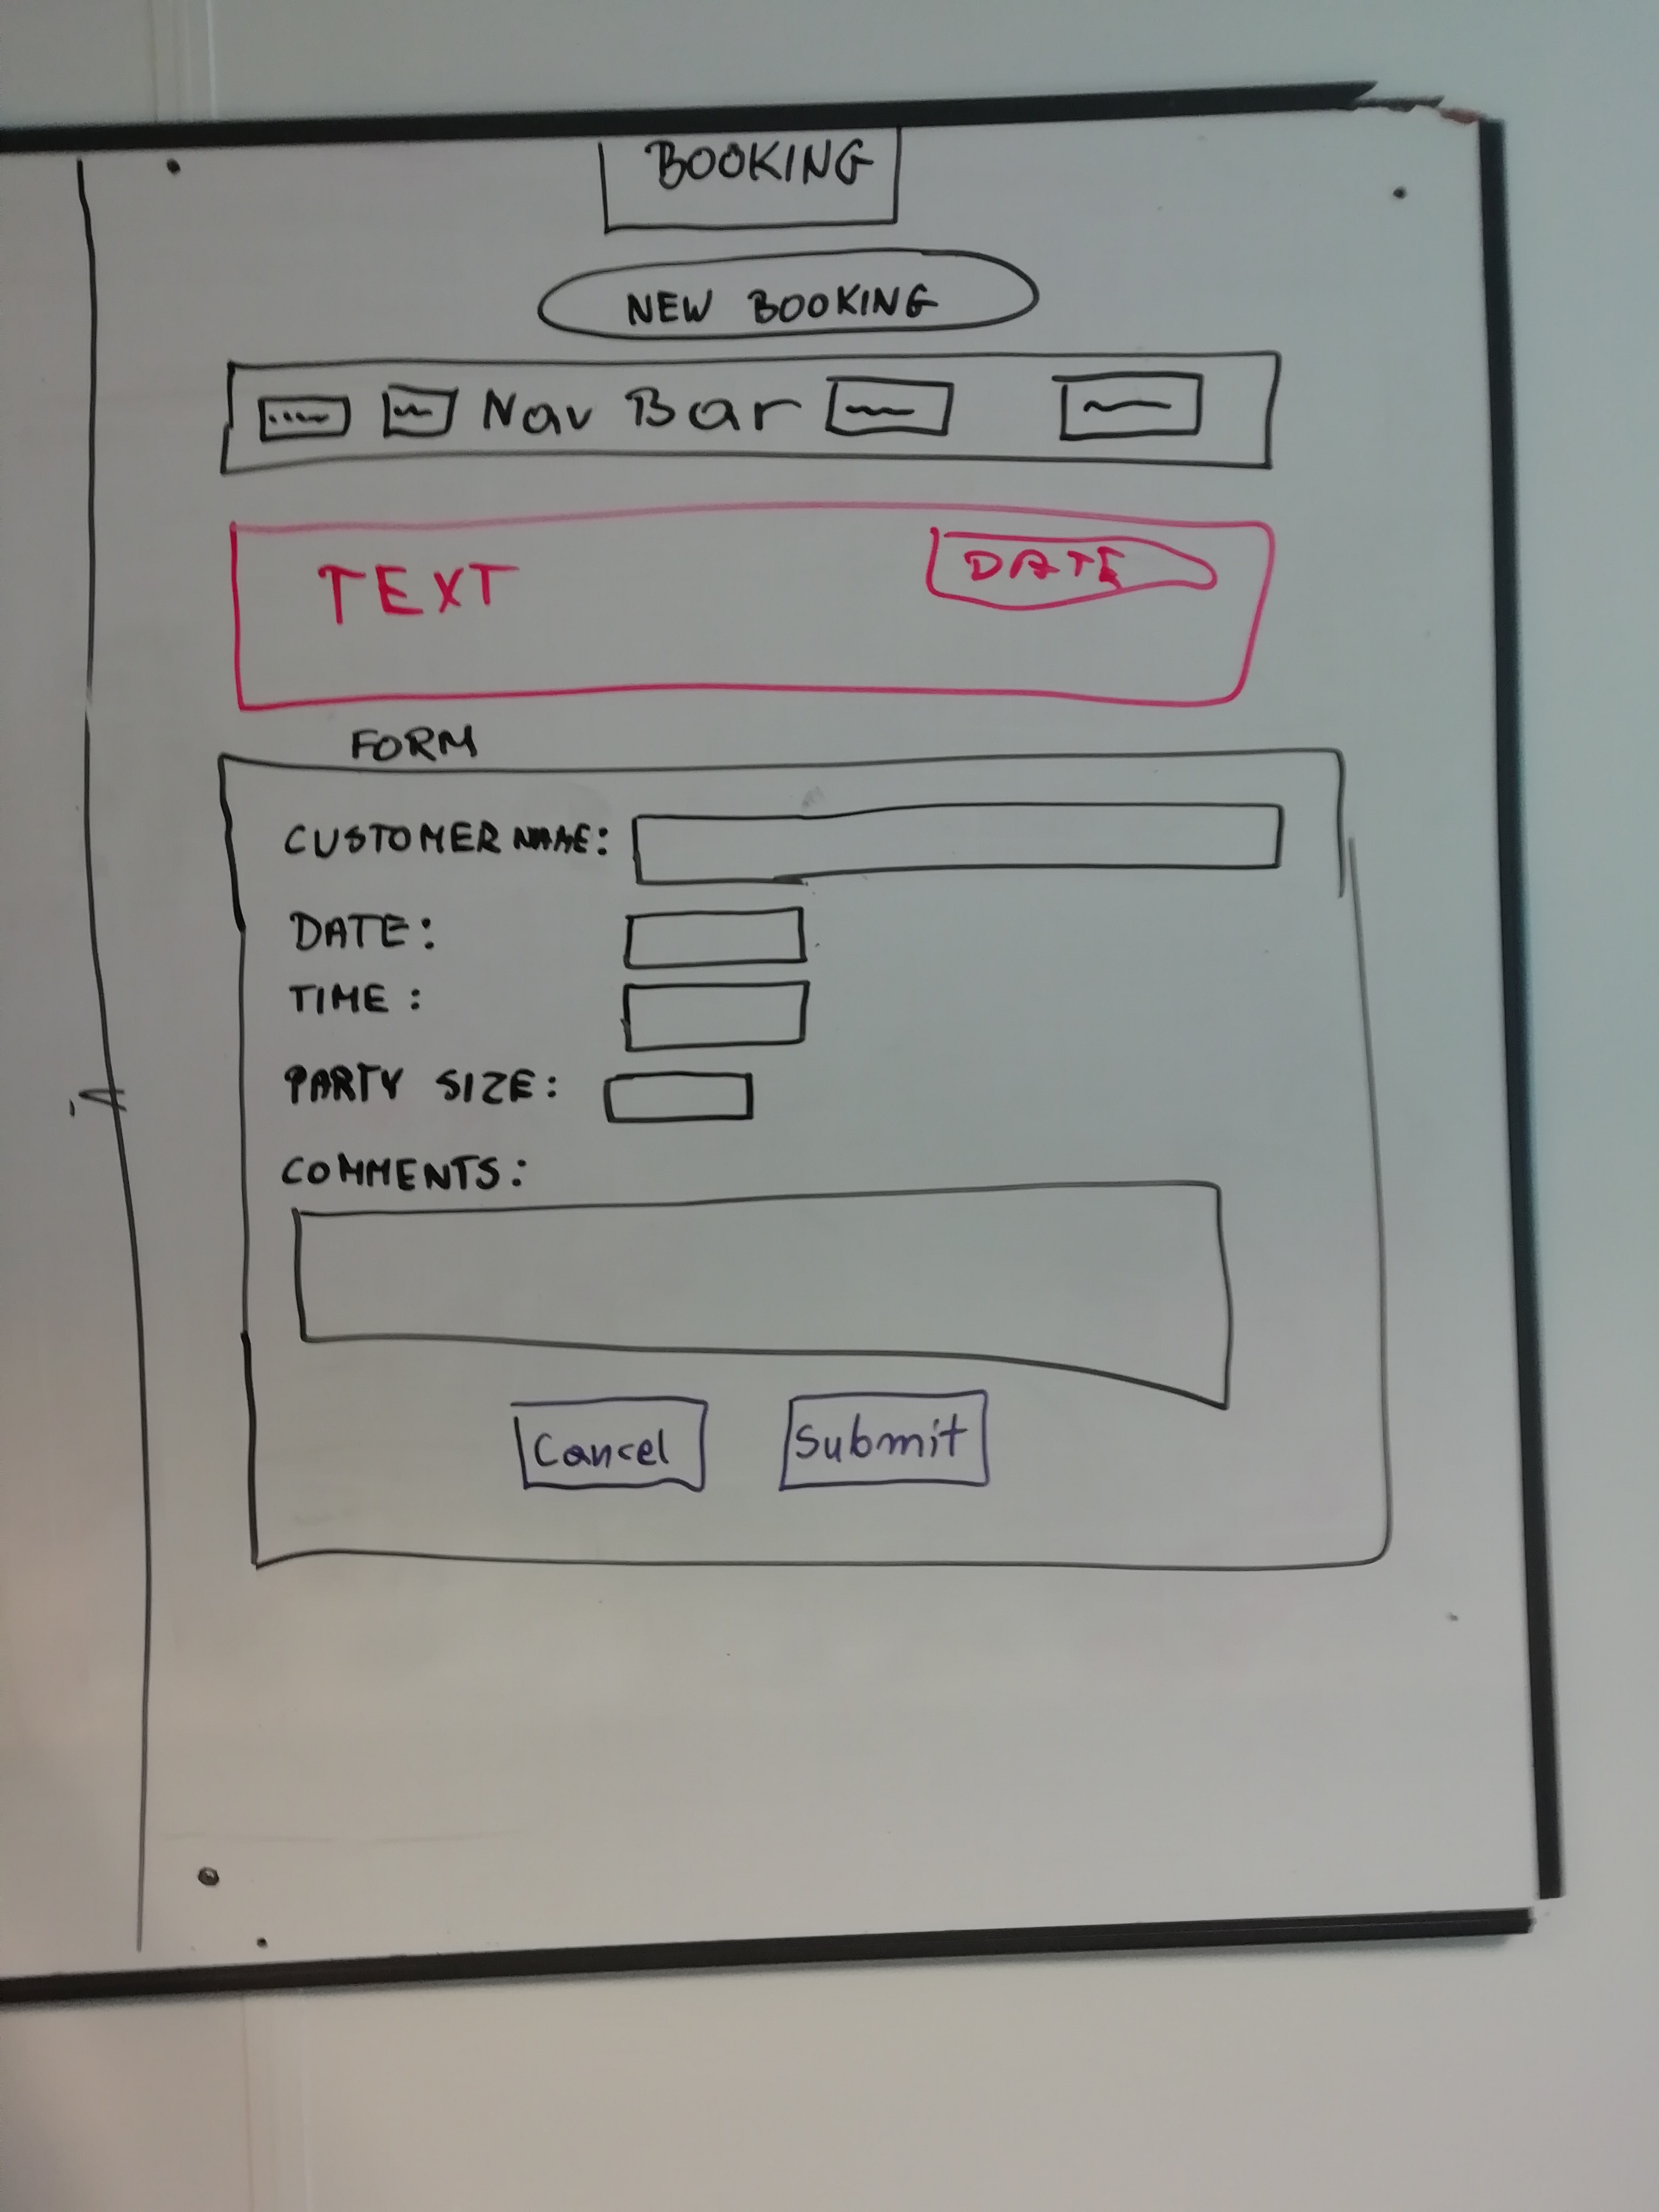 BOOKING
NEW BOOKING
Nav Bar
TEXT DATE
FORM
CUSTOMER NAME:
DATE:
TIME:
PARTY SIZE:
COMMENTS:
Cancel Submit